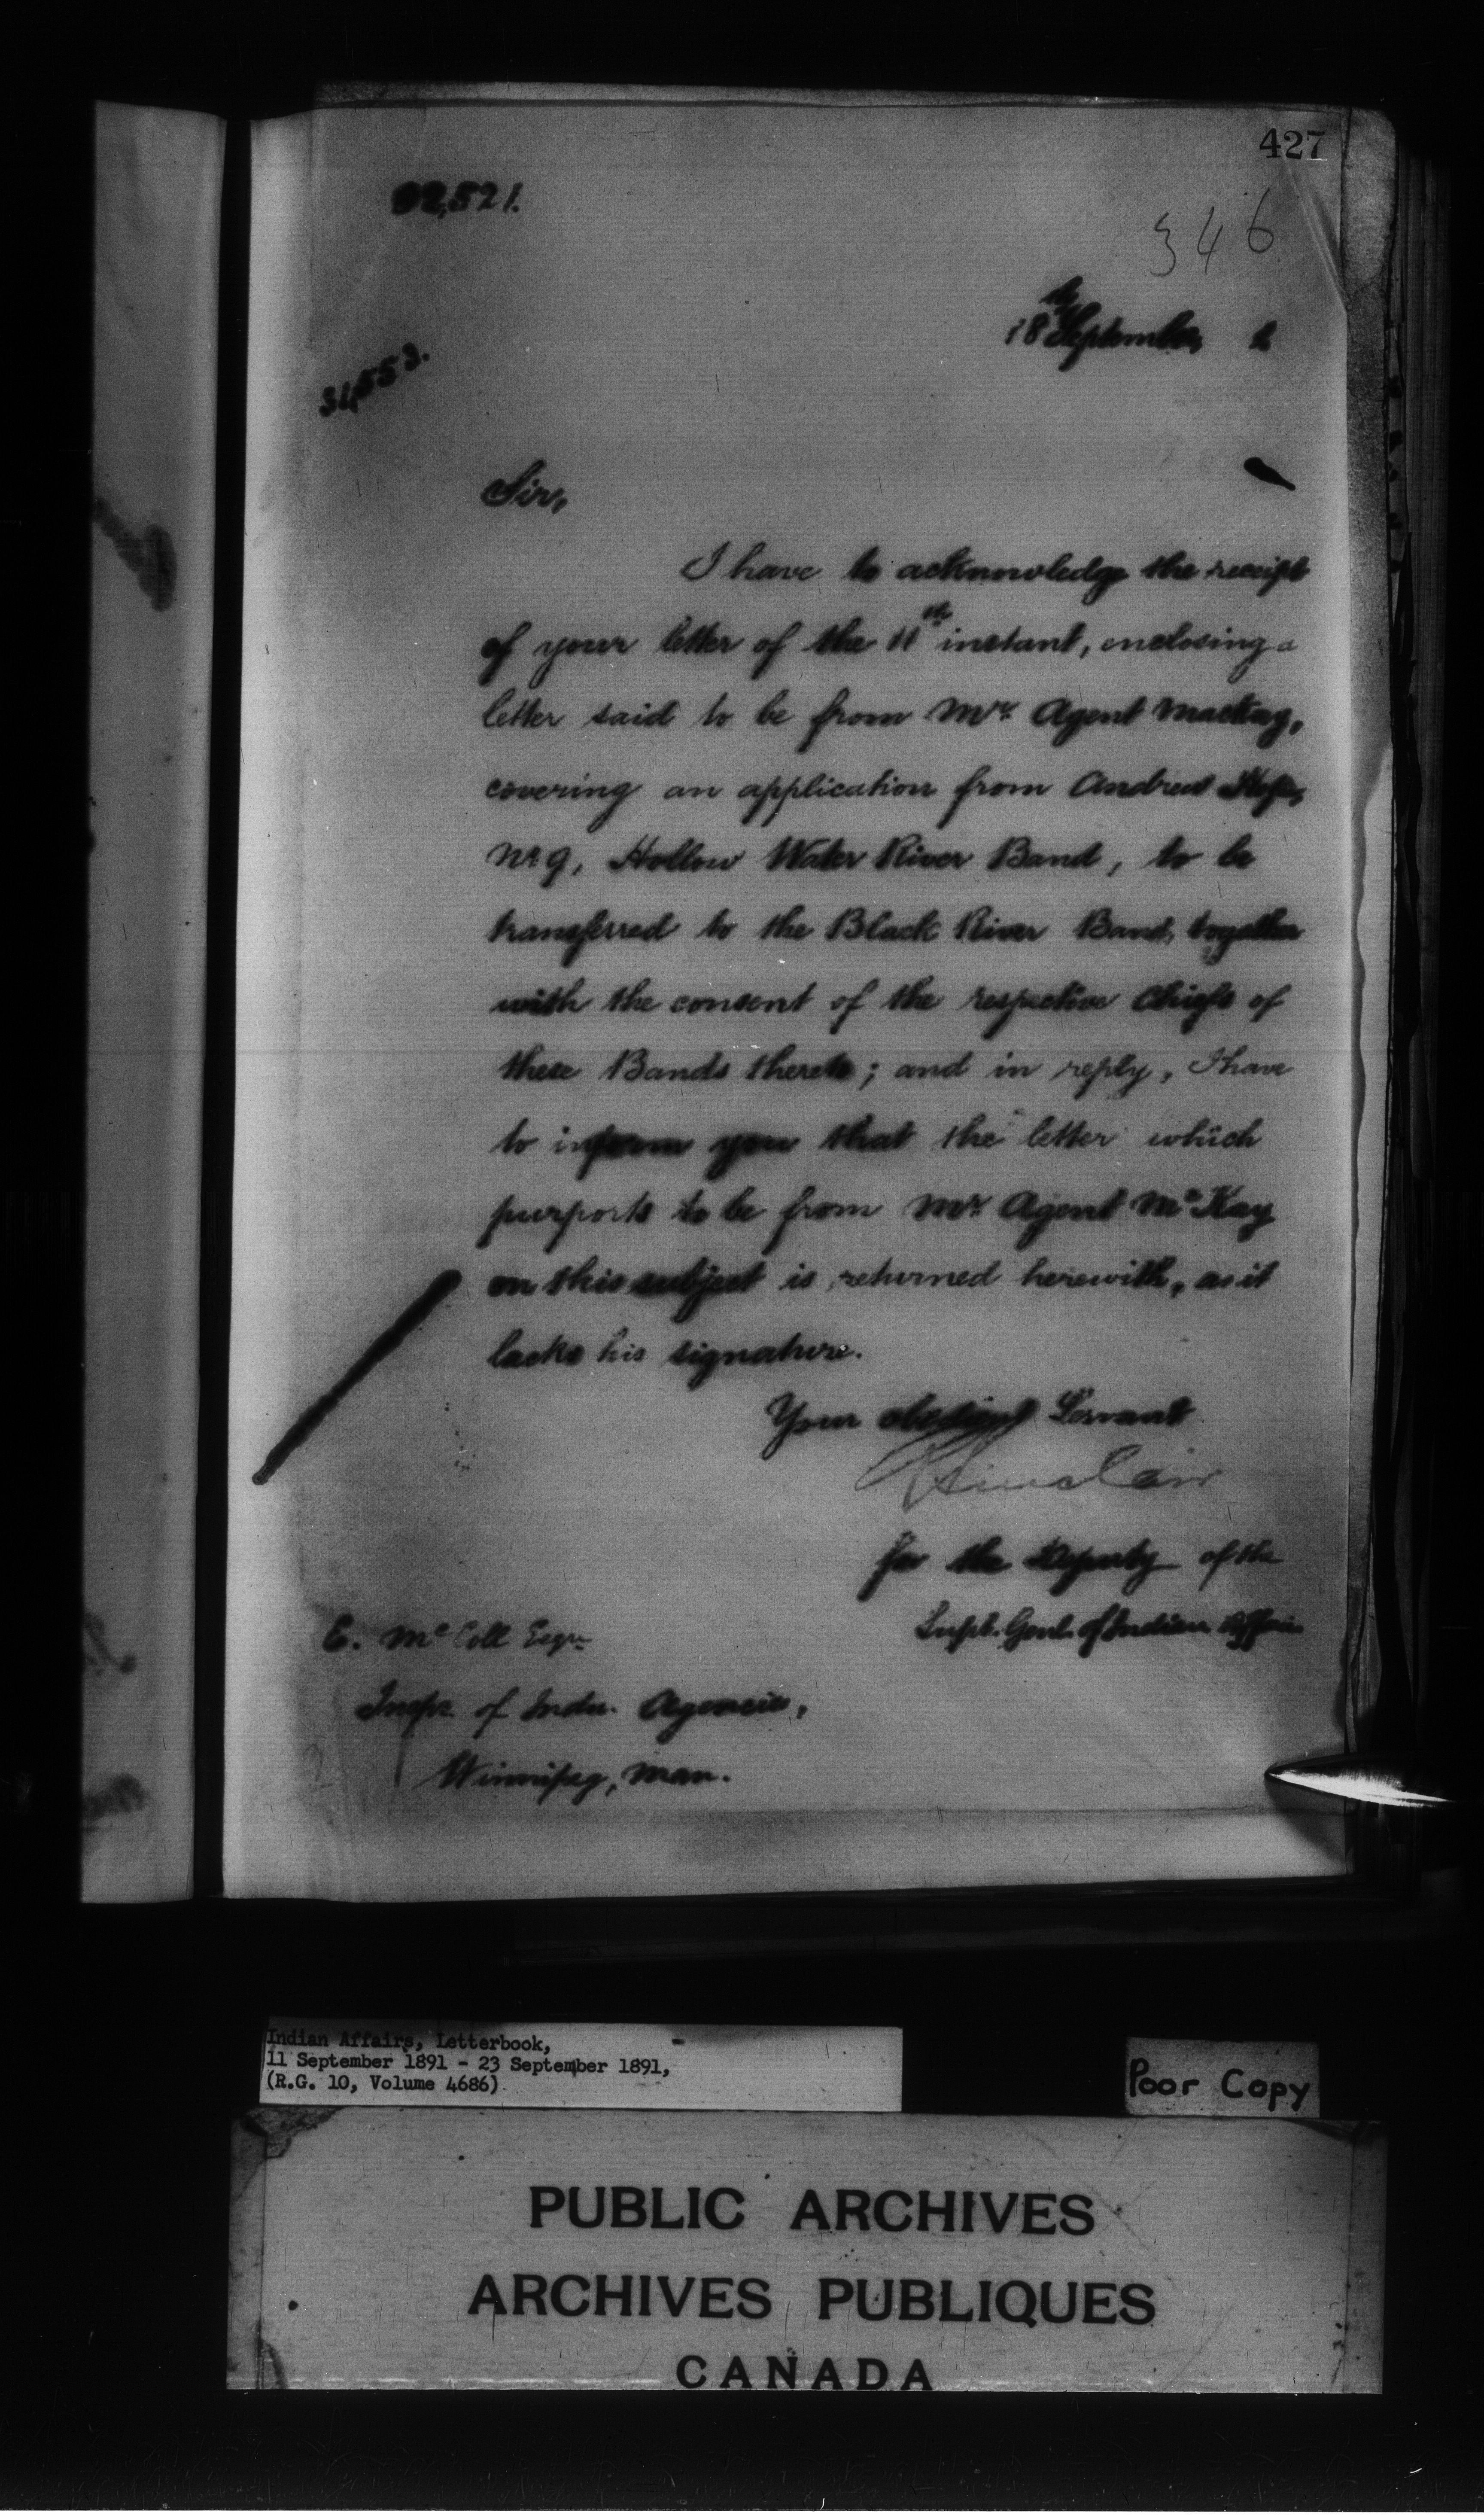 427
92,521.
346
18th September
34,553.
Sir,
I have to acknowledge the receipt
of your letter of the 11th instant, enclosing a
letter said to be from Mr. Agent Mackay,
covering an application from Andrew
No 9, Hollow Water River Band, to be
transferred to the Black River Band, together
with the consent of the respective Chiefs of
these Bands thereto; and in reply, I have
to inform you that the letter which
purports to be from Mr. Agent McKay
on this subject is returned herewith, as it
lacks his signature.
Your obedient Servant
Sinclair
for the Deputy of the
Supt. Genl. of Indian Affairs
E. McColl Esqre
Inspr. of Indn. Agencies,
Winnipeg, Man.
Indian Affairs, Letterbook,
11 September 1891 - 23 September 1891,
(R.G. 10, Volume 4686)
Poor Copy
PUBLIC ARCHIVES
ARCHIVES PUBLIQUES
CANADA